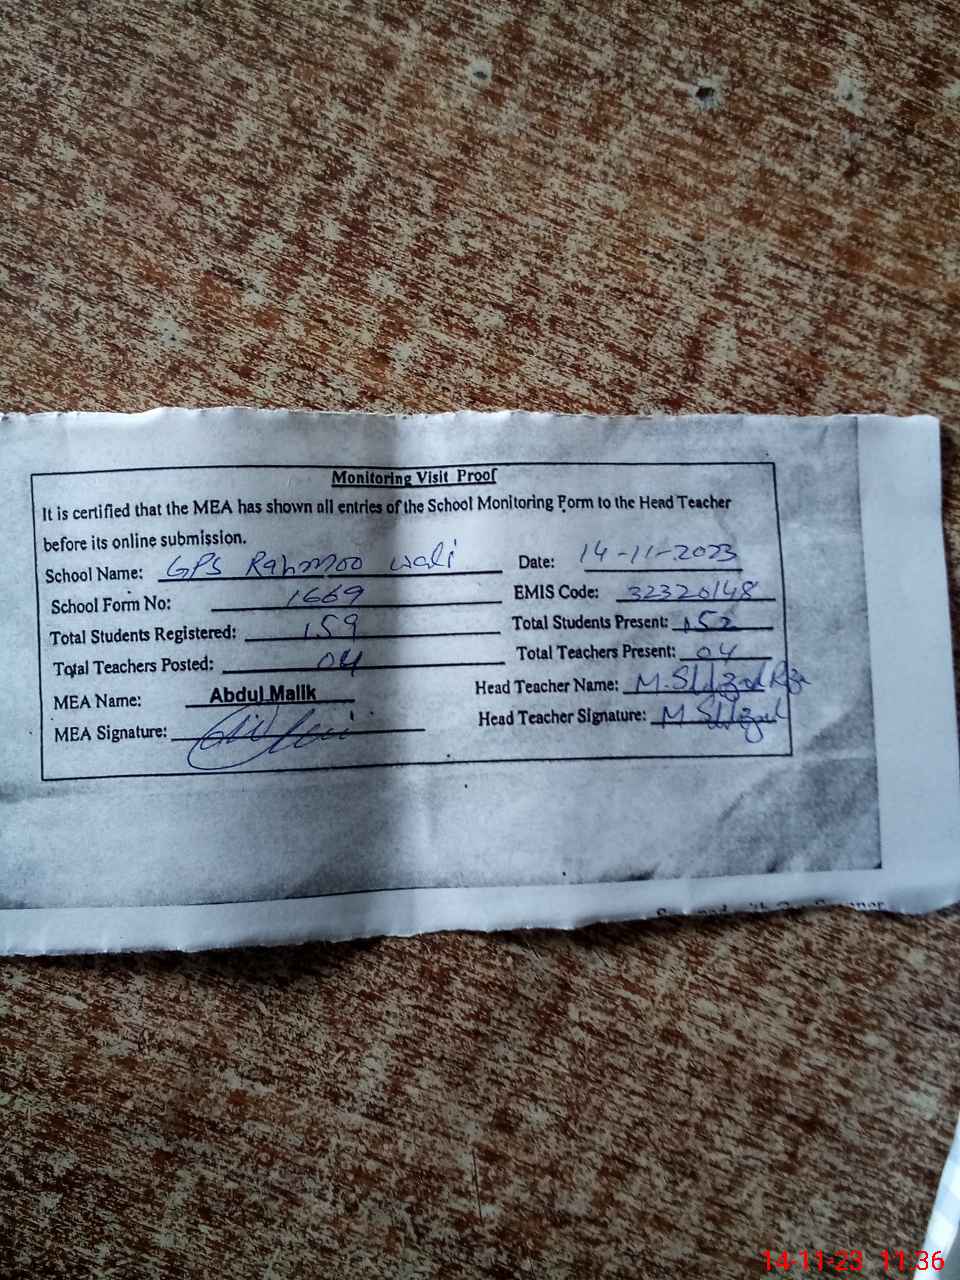 Monitoring Visit Proof
It is certified that the MEA has shown all entries of the School Monitoring Form to the Head Teacher
before its online submission.
School Name: GPS Rahmoo wali Date: 14-11-2023
School Form No: 1669 EMIS Code: 32320148
Total Students Registered: 159 Total Students Present: 152
Total Teachers Posted: 04 Total Teachers Present: 04
MEA Name: Abdul Malik Head Teacher Name: M.
MEA Signature: Head Teacher Signature: M
14-11-23 11:36